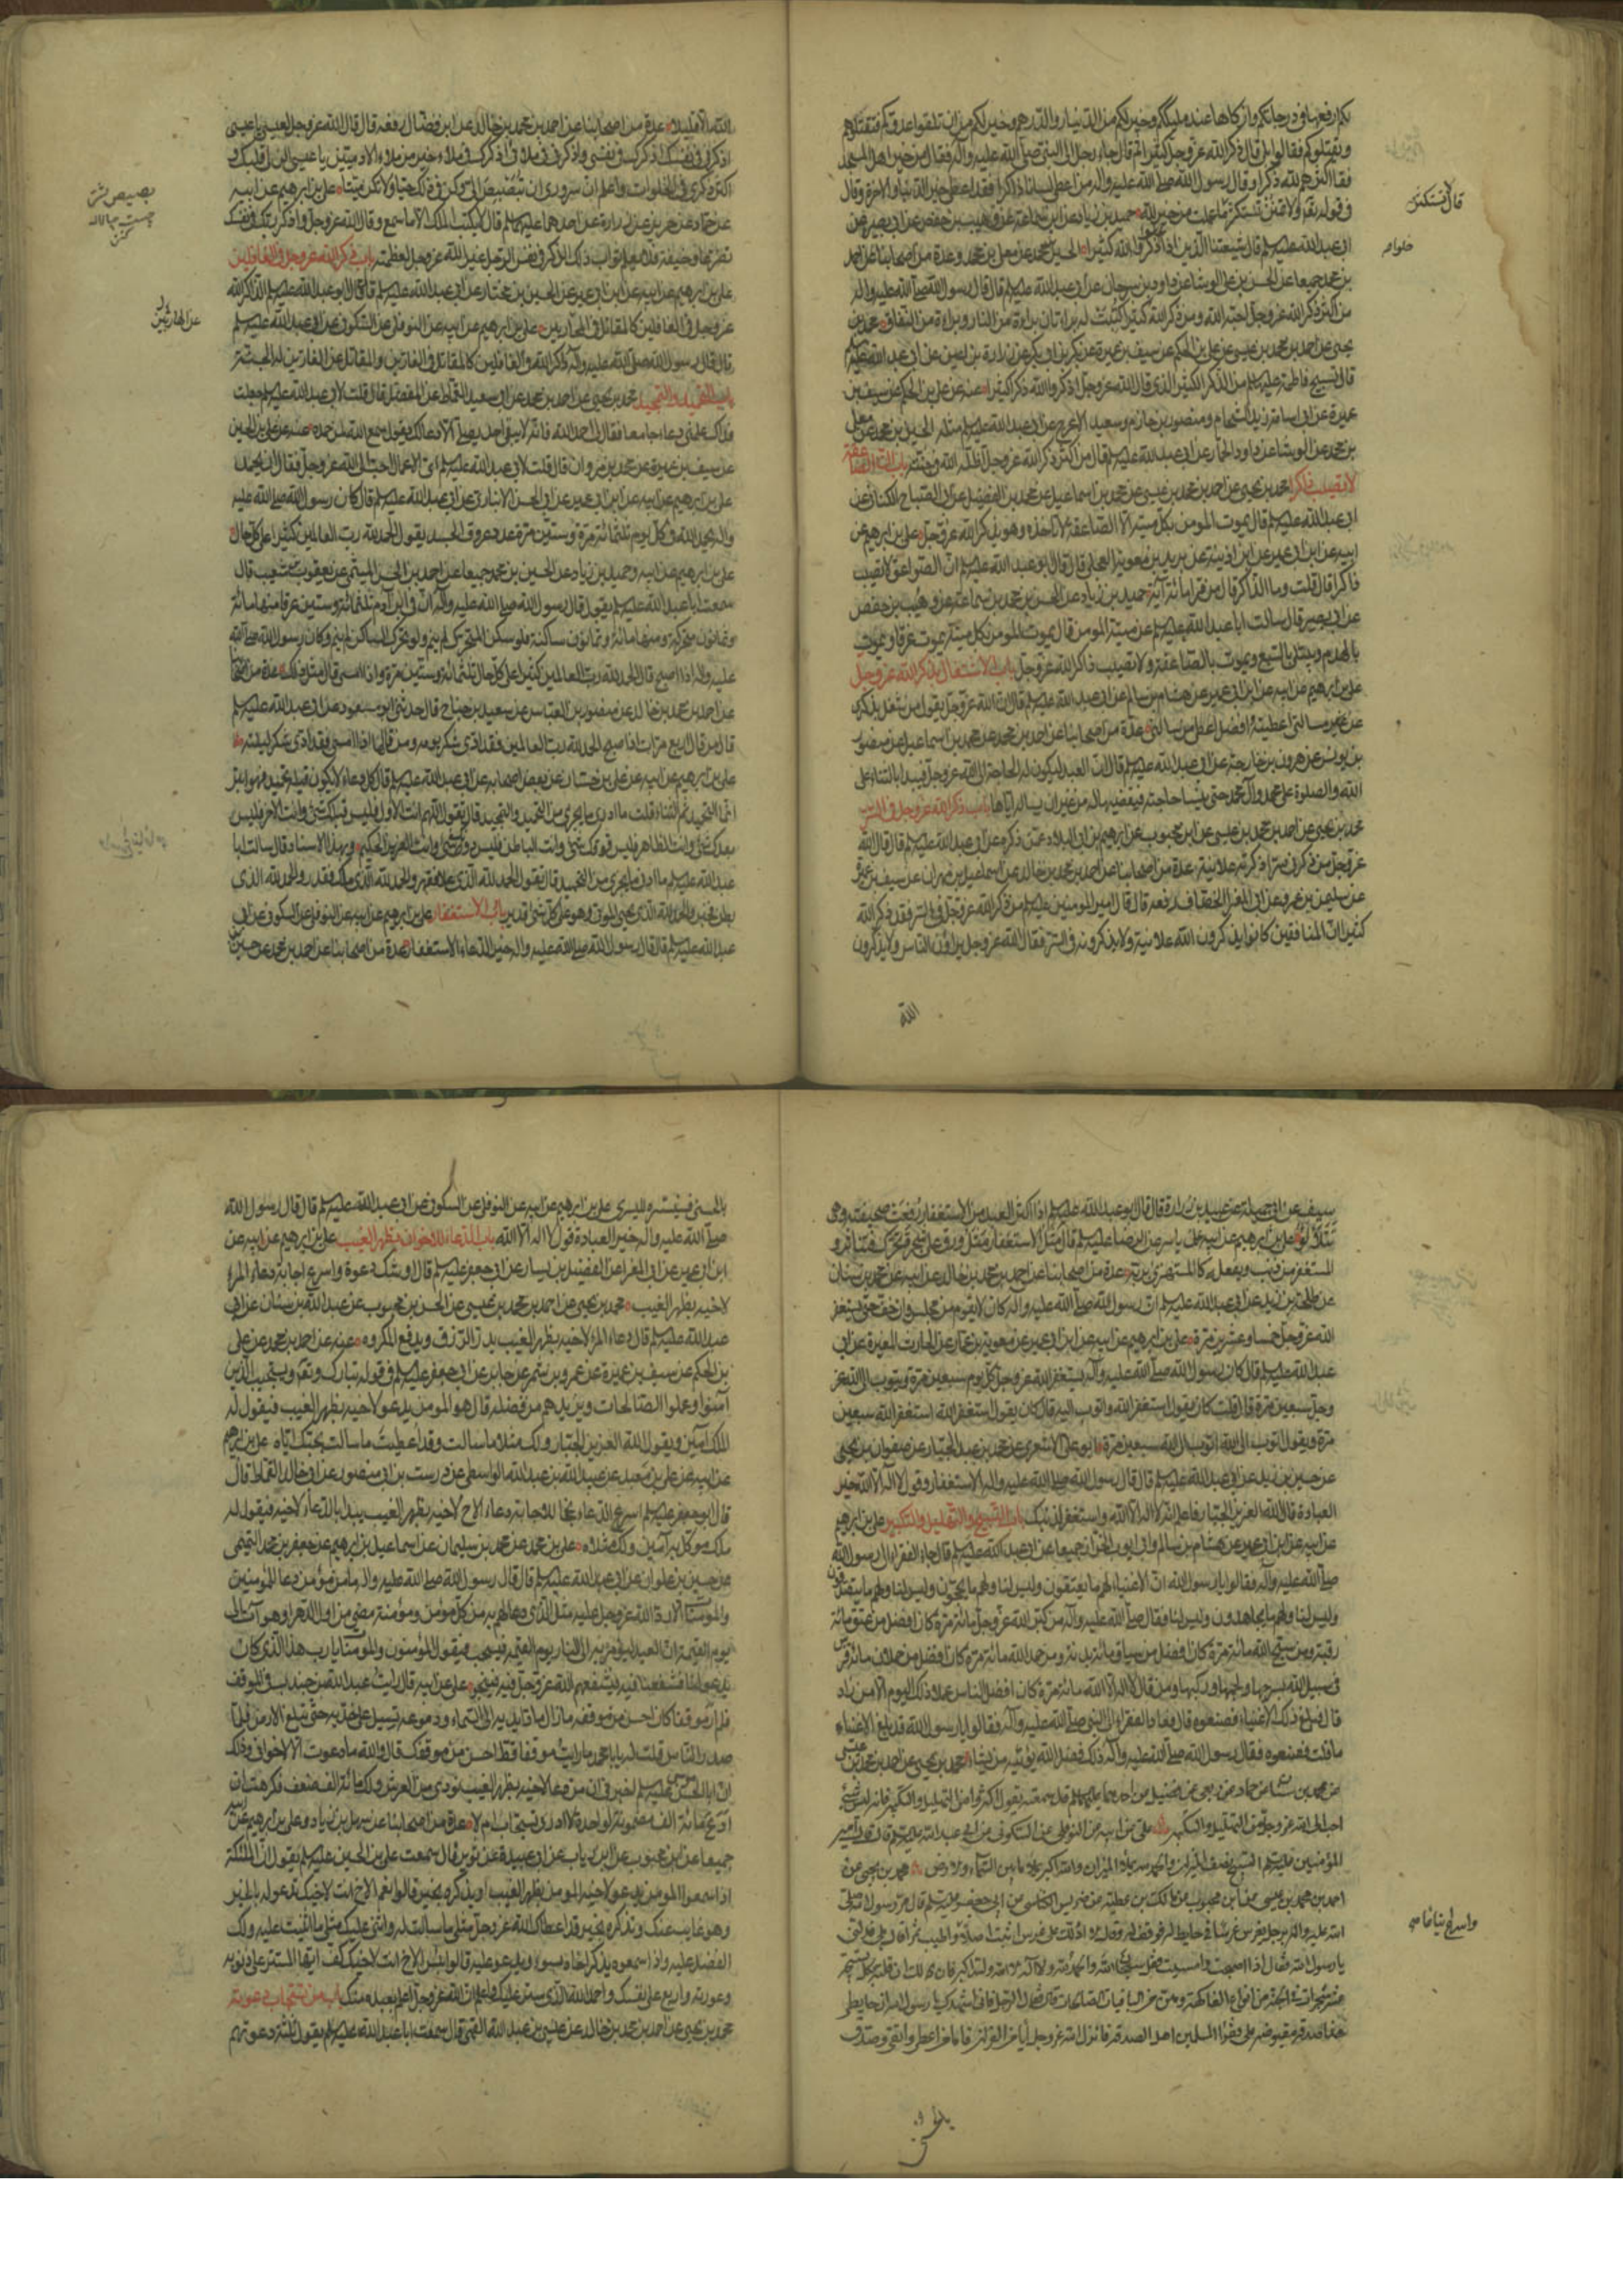 لكم ارفعها فى درجاتكم وازكاها عند مليككم وخير لكم من الدينار والدرهم وخير لكم من ان تلقوا عدوكم فتقتلوهم
ويقتلوكم فقالوا بلى قال ذكر الله عز وجل كثيرا ثم قال جاء رجل الى النبى صلى الله عليه وآله فقال من خير اهل المسجد
فقال اكثرهم لله ذكرا وقال رسول الله صلى الله عليه وآله من اعطى لسانا ذاكرا فقد اعطى خير الدنيا والاخرة وقال
فى قوله تعالى ولا تمنن تستكثر ما عملت من خير لله حميد بن زياد عن ابن سماعة عن وهيب بن حفص عن ابى بصير عن
ابى عبد الله عليه السلم قال شيعتنا الذين اذا ذكروا الله كثيرا الحسين بن محمد عن معلى بن محمد وعدة من اصحابنا عن احمد
بن محمد جميعا عن الحسن بن على الوشا عن داود بن سرحان عن ابى عبد الله عليه السلم قال قال رسول الله صلى الله عليه واله
من اكثر ذكر الله عز وجل احبه الله ومن ذكر الله كثيرا كتبت له براءتان براءة من النار وبراءة من النفاق محمد بن
يحيى عن احمد بن محمد بن عيسى عن على بن الحكم عن سيف بن عميرة عن بكر بن ابى بكر عن زرارة بن اعين عن ابى عبد الله عليه السلم
قال تسبيح فاطمة عليها السلم من الذكر الكثير الذى قال الله عز وجل اذكروا الله ذكرا كثيرا عنه عن على بن الحكم عن سيف بن
عميرة عن ابى اسامة زيد الشحام ومنصور بن حازم وسعيد الاعرج عن ابى عبد الله عليه السلم مثله الحسين بن محمد عن معلى
بن محمد عن الوشا عن داود الحمار عن ابى عبد الله عليه السلم قال من اكثر ذكر الله عز وجل اظله الله فى جنته باب ان الصاعقة
لا تصيب ذاكرا محمد بن يحيى عن احمد بن محمد بن عيسى عن محمد بن اسماعيل عن محمد بن الفضيل عن ابى الصباح الكنانى عن
ابى عبد الله عليه السلم قال يموت المؤمن بكل ميتة الا الصاعقة لا تاخذه وهو يذكر الله عز وجل على بن ابرهيم عن
ابيه عن ابن ابى عمير عن ابن اذينة عن بريد بن معوية العجلى قال قال ابو عبد الله عليه السلم ان الصواعق لا تصيب
ذاكرا قال قلت وما الذاكر قال من قرا مائة آية حميد بن زياد عن الحسن بن محمد بن سماعة عن وهيب بن حفص
عن ابى بصير قال سالت ابا عبد الله عليه السلم عن ميتة المؤمن قال يموت المؤمن بكل ميتة يموت غرقا ويموت
بالهدم ويبتلى بالسبع ويموت بالصاعقة ولا تصيب ذاكر الله عز وجل باب الاشتغال بذكر الله عز وجل
على بن ابرهيم عن ابيه عن ابن ابى عمير عن هشام بن سالم عن ابى عبد الله عليه السلم قال ان الله عز وجل يقول من شغل بذكرى
عن مسالتى اعطيته افضل ما اعطى من سالنى عدة من اصحابنا عن احمد بن محمد عن محمد بن اسماعيل عن منصور
بن يونس عن هرون بن خارجة عن ابى عبد الله عليه السلم قال ان العبد ليكون له الحاجة الى الله عز وجل فيبدا بالثناء على
الله والصلوة على محمد وآل محمد حتى ينسا حاجته فيقضيها له من غير ان يساله اياها باب ذكر الله عز وجل فى السر
محمد بن يحيى عن احمد بن محمد بن عيسى عن ابن محبوب عن ابرهيم بن ابى البلاد عمن ذكره عن ابى عبد الله عليه السلم قال قال الله
عز وجل من ذكرنى سرا ذكرته علانية عدة من اصحابنا عن احمد بن محمد بن خالد عن اسماعيل بن مهران عن سيف بن عميرة
عن سليمن بن عمرو عن ابى المغرا الخصاف رفعه قال قال امير المؤمنين عليه السلم من ذكر الله عز وجل فى السر فقد ذكر الله
كثيرا ان المنافقين كانوا يذكرون الله علانية ولا يذكرونه فى السر فقال الله عز وجل يراؤن الناس ولا يذكرون
الله
الله الا قليلا عدة من اصحابنا عن احمد بن محمد بن خالد عن ابن فضال رفعه قال قال الله عز وجل لعيسى يا عيسى
اذكرنى فى نفسك اذكرك فى نفسى واذكرنى فى ملاك اذكرك فى ملاء خير من ملاء الادميين يا عيسى الن لى قلبك و
اكثر ذكرى فى الخلوات واعلم ان سرورى ان تبصبص الى وكن فى ذلك حيا ولا تكن ميتا على بن ابرهيم عن ابيه
عن حماد عن حريز عن زرارة عن احدهما عليهما السلم قال لا يكتب الملك الا ما سمع وقال الله عز وجل واذكر ربك فى نفسك
تضرعا وخيفة فلا يعلم ثواب ذلك الذكر فى نفس الرجل غير الله عز وجل لعظمته باب ذكر الله عز وجل فى الغافلين
على بن ابرهيم عن ابيه عن ابن ابى عمير عن الحسين بن مختار عن ابى عبد الله عليه السلم قال قال ابو عبد الله عليه السلم الذاكر لله
عز وجل فى الغافلين كالمقاتل فى المحاربين على بن ابرهيم عن ابيه عن النوفلى عن السكونى عن ابى عبد الله عليه السلم
قال قال رسول الله صلى الله عليه وآله ذاكر الله فى الغافلين كالمقاتل عن الفارين والمقاتل عن الفارين له الجنة
باب التحميد والتمجيد محمد بن يحيى عن احمد بن محمد عن ابى سعيد القماط عن المفضل قال قلت لابى عبد الله عليه السلم جعلت
فداك علمنى دعاء جامعا فقال لى احمد الله فانه لا يبقى احد يصلى الا دعا لك يقول سمع الله لمن حمده عنه عن على بن الحسين
عن سيف بن عميرة عن محمد بن مروان قال قلت لابى عبد الله عليه السلم اى الاعمال احب الى الله عز وجل فقال ان تحمده
على بن ابرهيم عن ابيه عن ابن ابى عمير عن ابى الحسن الانبارى عن ابى عبد الله عليه السلم قال كان رسول الله صلى الله عليه
واله يحمد الله فى كل يوم ثلثمائة مرة وستين مرة عدد عروق الجسد يقول الحمد لله رب العالمين كثيرا على كل حال
على بن ابرهيم عن ابيه وحميد بن زياد عن الحسين بن محمد جميعا عن احمد بن الحسن الميثمى عن يعقوب بن شعيب قال
سمعت ابا عبد الله عليه السلم يقول قال رسول الله صلى الله عليه واله ان فى ابن آدم ثلثمائة وستين عرقا منها مائة
وثمانون متحركة ومنها مائة وثمانون ساكنة فلو سكن المتحرك لم ينم ولو تحرك الساكن لم ينم وكان رسول الله صلى الله
عليه واله اذا اصبح قال الحمد لله رب العالمين كثيرا على كل حال ثلثمائة وستين مرة واذا امسى قال مثل ذلك عدة من اصحابنا
عن احمد بن محمد بن خالد عن منصور بن العباس عن سعيد بن جناح قال حدثنى ابو مسعود عن ابى عبد الله عليه السلم
قال من قال اربع مرات اذا اصبح الحمد لله رب العالمين فقد ادى شكر يومه ومن قالها اذا امسى فقد ادى شكر ليلته
على بن ابرهيم عن ابيه عن على بن حسان عن بعض اصحابه عن ابى عبد الله عليه السلم قال كل دعاء لا يكون قبله تحميد فهو ابتر
انما التحميد ثم الثناء قلت ما ادرى ما يجزى من التحميد والتمجيد قال يقول اللهم انت الاول فليس قبلك شئ وانت الاخر فليس
بعدك شئ وانت الظاهر فليس فوقك شئ وانت الباطن فليس دونك شئ وانت العزيز الحكيم وبهذا الاسناد قال سالت ابا
عبد الله عليه السلم ما ادنى ما يجزى من التحميد قال تقول الحمد لله الذى علا فقهر والحمد لله الذى ملك فقدر والحمد لله الذى
بطن فخبر والحمد لله الذى يحيى الموتى وهو على كل شئ قدير باب الاستغفار على بن ابرهيم عن ابيه عن النوفلى عن السكونى عن ابى
عبد الله عليه السلم قال قال رسول الله صلى الله عليه واله خير الدعاء الاستغفار عدة من اصحابنا عن احمد بن محمد عن حسين بن
سيف عن ابى جميلة عن عبيد بن زرارة قال قال ابو عبد الله عليه السلم اذا اكثر العبد من الاستغفار رفعت صحيفته وهى
تتلالؤ على بن ابرهيم عن ابيه عن ياسر عن الرضا عليه السلم قال مثل الاستغفار مثل ورق على شجرة تحرك فتناثر و
المستغفر من ذنب ويفعله كالمستهزئ بربه عدة من اصحابنا عن احمد بن محمد بن خالد عن ابيه عن محمد بن سنان
عن طلحة بن زيد عن ابى عبد الله عليه السلم ان رسول الله صلى الله عليه واله كان لا يقوم من مجلس وان خف حتى يستغفر
الله عز وجل خمسا وعشرين مرة على بن ابرهيم عن ابيه عن ابن ابى عمير عن معوية بن عمار عن الحارث بن المغيرة عن ابى
عبد الله عليه السلم قال كان رسول الله صلى الله عليه وآله يستغفر الله عز وجل كل يوم سبعين مرة ويتوب الى الله عز
وجل سبعين مرة قال قلت كان يقول استغفر الله واتوب اليه قال كان يقول استغفر الله استغفر الله سبعين
مرة ويقول اتوب الى الله اتوب الى الله سبعين مرة ابو على الاشعرى عن محمد بن عبد الجبار عن صفوان بن يحيى
عن حسين بن زيد عن ابى عبد الله عليه السلم قال قال رسول الله صلى الله عليه واله الاستغفار وقول لا اله الا الله خير
العبادة قال الله العزيز الجبار فاعلم انه لا اله الا الله واستغفر لذنبك باب التسبيح والتهليل والتكبير على بن ابرهيم
عن ابيه عن ابن ابى عمير عن هشام بن سالم وابى ايوب الخزاز جميعا عن ابى عبد الله عليه السلم قال جاء الفقراء الى رسول الله
صلى الله عليه وآله فقالوا يا رسول الله ان الاغنياء لهم ما يعتقون وليس لنا ولهم ما يحجون وليس لنا ولهم ما يتصدقون
وليس لنا ولهم ما يجاهدون وليس لنا فقال صلى الله عليه وآله من كبر الله عز وجل مائة مرة كان افضل من عتق مائة
رقبة ومن سبح الله مائة مرة كان افضل من سياق مائة بدنة ومن حمد الله مائة مرة كان افضل من حملان مائة فرس
فى سبيل الله بسرجها ولجمها وركبها ومن قال لا اله الا الله مائة مرة كان افضل الناس عملا ذلك اليوم الا من زاد
قال فبلغ ذلك الاغنياء فصنعوه قال فعاد الفقراء الى النبى صلى الله عليه وآله فقالوا يا رسول الله قد بلغ الاغنياء
ما قلت فصنعوه فقال رسول الله صلى الله عليه وآله ذلك فضل الله يؤتيه من يشاء محمد بن يحيى عن احمد بن محمد بن عيسى
عن محمد بن سنان عن حماد عن ربعى عن فضيل عن احدهما عليهما السلم قال سمعته يقول اكثروا من التهليل والتكبير فانه ليس شئ
احب الى الله عز وجل من التهليل والتكبير على عن ابيه عن النوفلى عن السكونى عن ابى عبد الله عليه السلم قال قال امير
المؤمنين عليه السلم التسبيح نصف الميزان والحمد لله يملا الميزان والله اكبر يملا ما بين السماء والارض محمد بن يحيى عن
احمد بن محمد بن عيسى عن ابن محبوب عن مالك بن عطية عن ضريس الكناسى عن ابى جعفر عليه السلم قال مر رسول الله صلى
الله عليه واله برجل يغرس غرسا فى حايط له فوقف له وقال الا ادلك على غرس اثبت اصلا واطيب ثمرا قال بلى فدلنى
يا رسول الله فقال اذا اصبحت وامسيت فقل سبحان الله والحمد لله ولا اله الا الله والله اكبر فان لك ان قلته بكل تسبيحة
عشر شجرات فى الجنة من انواع الفاكهة وهن من الباقيات الصالحات قال فقال الرجل فانى اشهدك يا رسول الله ان حايطى
هذا صدقة مقبوضة على فقراء المسلمين اهل الصدقة فانزل الله عز وجل آيات من القرآن فاما من اعطى واتقى وصدق
بالحسنى فسنيسره لليسرى على بن ابرهيم عن ابيه عن النوفلى عن السكونى عن ابى عبد الله عليه السلم قال قال رسول الله
صلى الله عليه واله خير العبادة قول لا اله الا الله باب الدعاء للاخوان بظهر الغيب على بن ابرهيم عن ابيه عن
ابن ابى عمير عن ابى المغرا عن الفضيل بن يسار عن ابى جعفر عليه السلم قال اوشك دعوة واسرع اجابة دعاء المرء
لاخيه بظهر الغيب محمد بن يحيى عن احمد بن محمد بن عيسى عن الحسن بن محبوب عن عبد الله بن سنان عن ابى
عبد الله عليه السلم قال دعاء المرء لاخيه بظهر الغيب يدر الرزق ويدفع المكروه عنه عن احمد بن محمد عن على
بن الحكم عن سيف بن عميرة عن عمرو بن شمر عن جابر عن ابى جعفر عليه السلم فى قوله تبارك وتعالى ويستجيب الذين
آمنوا وعملوا الصالحات ويزيدهم من فضله قال هو المؤمن يدعو لاخيه بظهر الغيب فيقول له
الملك آمين ويقول الله العزيز الجبار ولك مثلا ما سالت وقد اعطيت ما سالت بحبك اياه على بن ابرهيم
عن ابيه عن على بن معبد عن عبيد الله بن عبد الله الواسطى عن درست بن ابى منصور عن ابى خالد القماط قال
قال ابو جعفر عليه السلم اسرع الدعاء نجحا للاجابة دعاء الاخ لاخيه بظهر الغيب يبدا بالدعاء لاخيه فيقول له
ملك موكل به آمين ولك مثلاه على بن محمد عن محمد بن سليمان عن اسماعيل بن ابرهيم عن جعفر بن محمد التميمى
عن حسين بن علوان عن ابى عبد الله عليه السلم قال قال رسول الله صلى الله عليه واله ما من مؤمن دعا للمؤمنين
والمؤمنات الا رد الله عز وجل عليه مثل الذى دعا لهم به من كل مؤمن ومؤمنة مضى من اول الدهر او هو آت الى
يوم القيمة ان العبد ليؤمر به الى النار يوم القيمة فيسحب فيقول المؤمنون والمؤمنات يا رب هذا الذى كان
يدعو لنا فشفعنا فيه فيشفعهم الله عز وجل فيه فينجو على عن ابيه قال رايت عبد الله بن جندب فى الموقف
فلم ار موقفا كان احسن من موقفه ما زال مادا يديه الى السماء ودموعه تسيل على خديه حتى تبلغ الارض فلما
صدر الناس قلت له يا با محمد ما رايت موقفا قط احسن من موقفك قال والله ما دعوت الا لاخوانى وذلك
ان ابا الحسن موسى عليه السلم اخبرنى ان من دعا لاخيه بظهر الغيب نودى من العرش ولك مائة الف ضعف فكرهت ان
ادع مائة الف مضمونة لواحدة لا ادرى تستجاب ام لا عدة من اصحابنا عن سهل بن زياد وعلى بن ابرهيم عن ابيه
جميعا عن ابن محبوب عن ابن رياب عن ابى عبيدة عن ثوير قال سمعت على بن الحسين عليه السلم يقول ان الملئكة
اذا سمعوا المؤمن يدعو لاخيه المؤمن بظهر الغيب او يذكره بخير قالوا نعم الاخ انت لاخيك تدعو له بالخير
وهو غايب عنك وتذكره بخير قد اعطاك الله عز وجل مثلى ما سالت له واثنى عليك مثلى ما اثنيت عليه ولك
الفضل عليه واذا سمعوه يذكر اخاه بسوء ويدعو عليه قالوا بئس الاخ انت لاخيك كف ايها المستر على ذنوبه
وعورته واربع على نفسك واحمد الله الذى ستر عليك واعلم ان الله عز وجل اعلم بعبده منك باب من تستجاب دعوته
محمد بن يحيى عن احمد بن محمد بن خالد عن عيسى بن عبد الله القمى قال سمعت ابا عبد الله عليه السلم يقول ثلثة دعوتهم